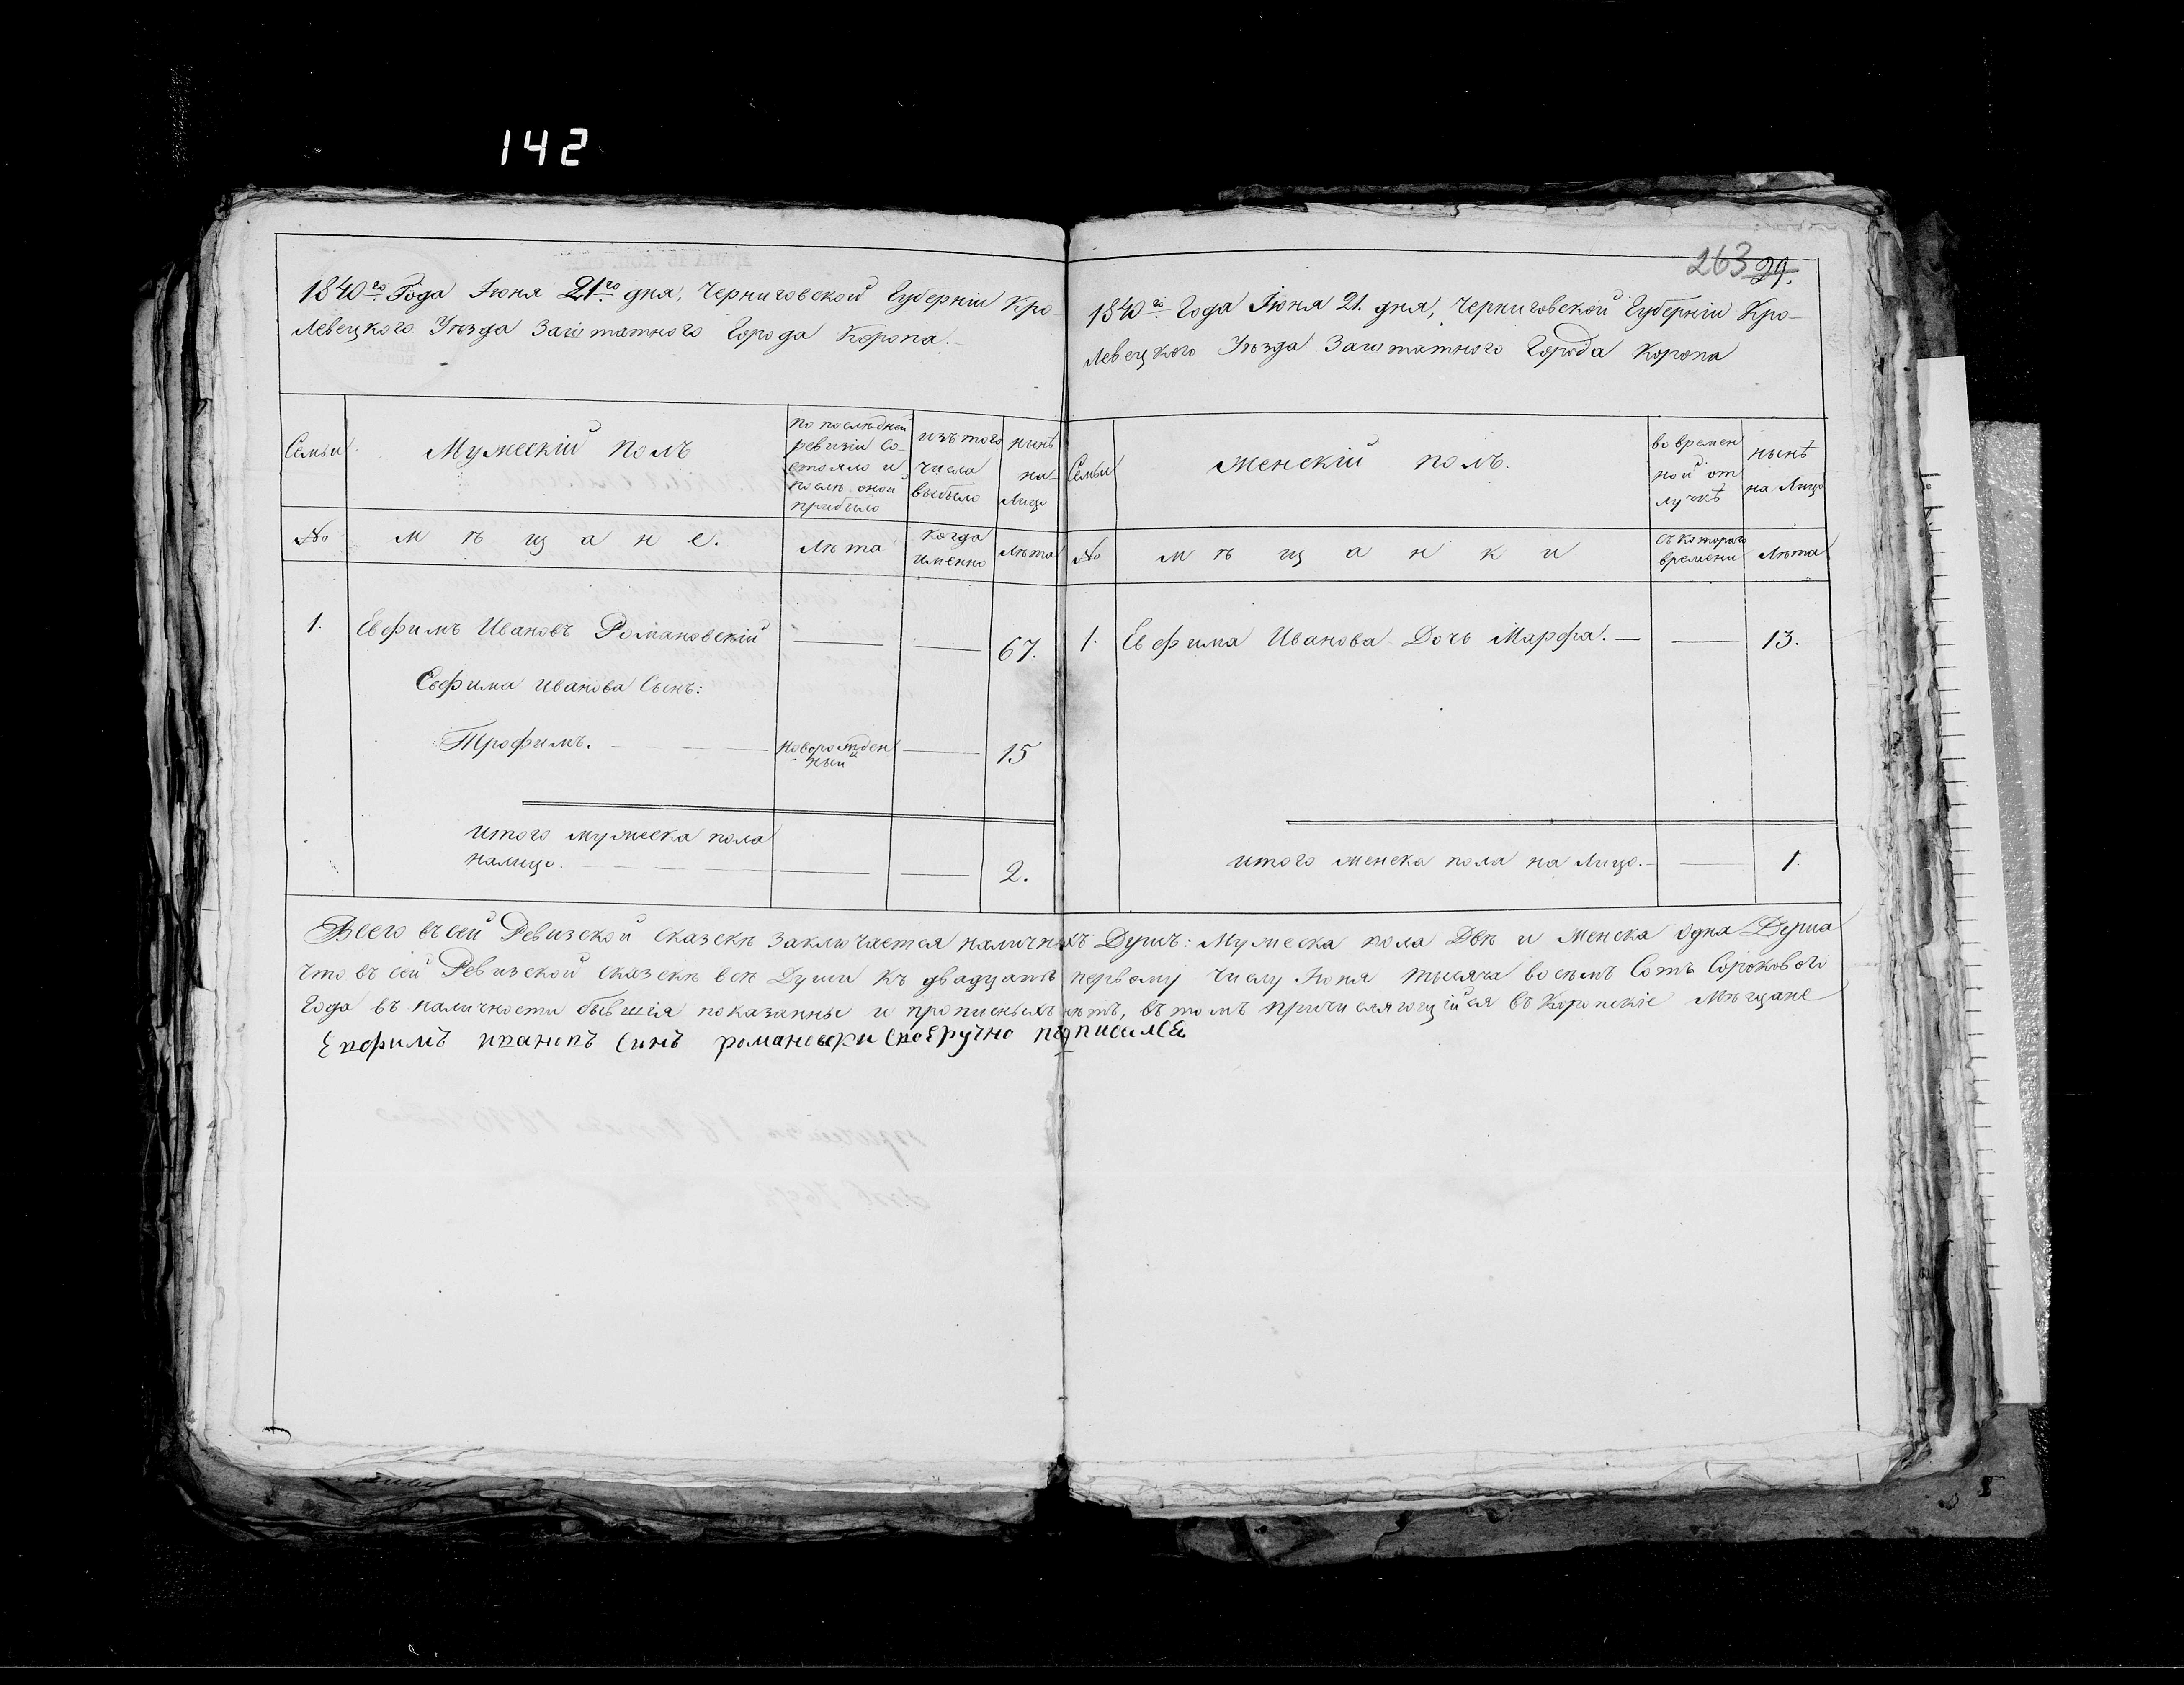 142
263 29.
1840го Года Июня 21го дня, Черниговской Губерніи Кро
левецкого Уѣзда Заштатного Города Коропа.
Семьи
Мужескій полъ
по послѣдней ревизіи со-
стояло и послѣ оной прибыло
изъ того числа выбыло
нынѣ на-лицо
№
мѣщане.
лѣта
когда именно
лѣта
1. Евфимъ Ивановъ Романовскій — — 67.
Евфима Иванова Сынъ:
Трофимъ. — новорожден
ный — 15
итого мужеска пола
налицо. — — 2.
1840го Года Іюня 21. дня, Черниговской Губерніи Кро-
левецкого Уѣзда Заштатного Города Коропа
Семьи
Женскій полъ.
во времен
ной от
лучкѣ
нынѣ
на лицо
№
мѣщанки
съ которого
времени
лѣта
1. Евфима Иванова Дочь Марфа. — — 13.
итого женска пола на лицо. — — 1.
Всего въ сей Ревизской сказскѣ заключается наличныхъ Душъ: Мужеска пола Двѣ и Женска одна Душа
что въ сей Ревизской сказскѣ всѣ Души къ двадцать первому числу Июня тысяча восемъ Сотъ Сорокового
Года въ наличности бывшія показанны и прописныхъ нѣтъ, въ томъ причисляющійся въ Коропскіе Мѣщане
Екфимъ иванивъ Синъ романовски Своеручно подписался